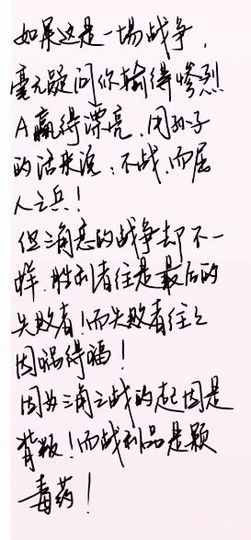 如果这是一場战争,
毫无疑问你输得惨烈
A赢得漂亮.用孙子
的话来说:不战而屈
人之兵!
但三角恋的战争却不一
样.胜利者往是最后的
失败者!而失败者往之
因祸得福!
因为三角之战的起因是
背叛!而战利品是颗
毒药!